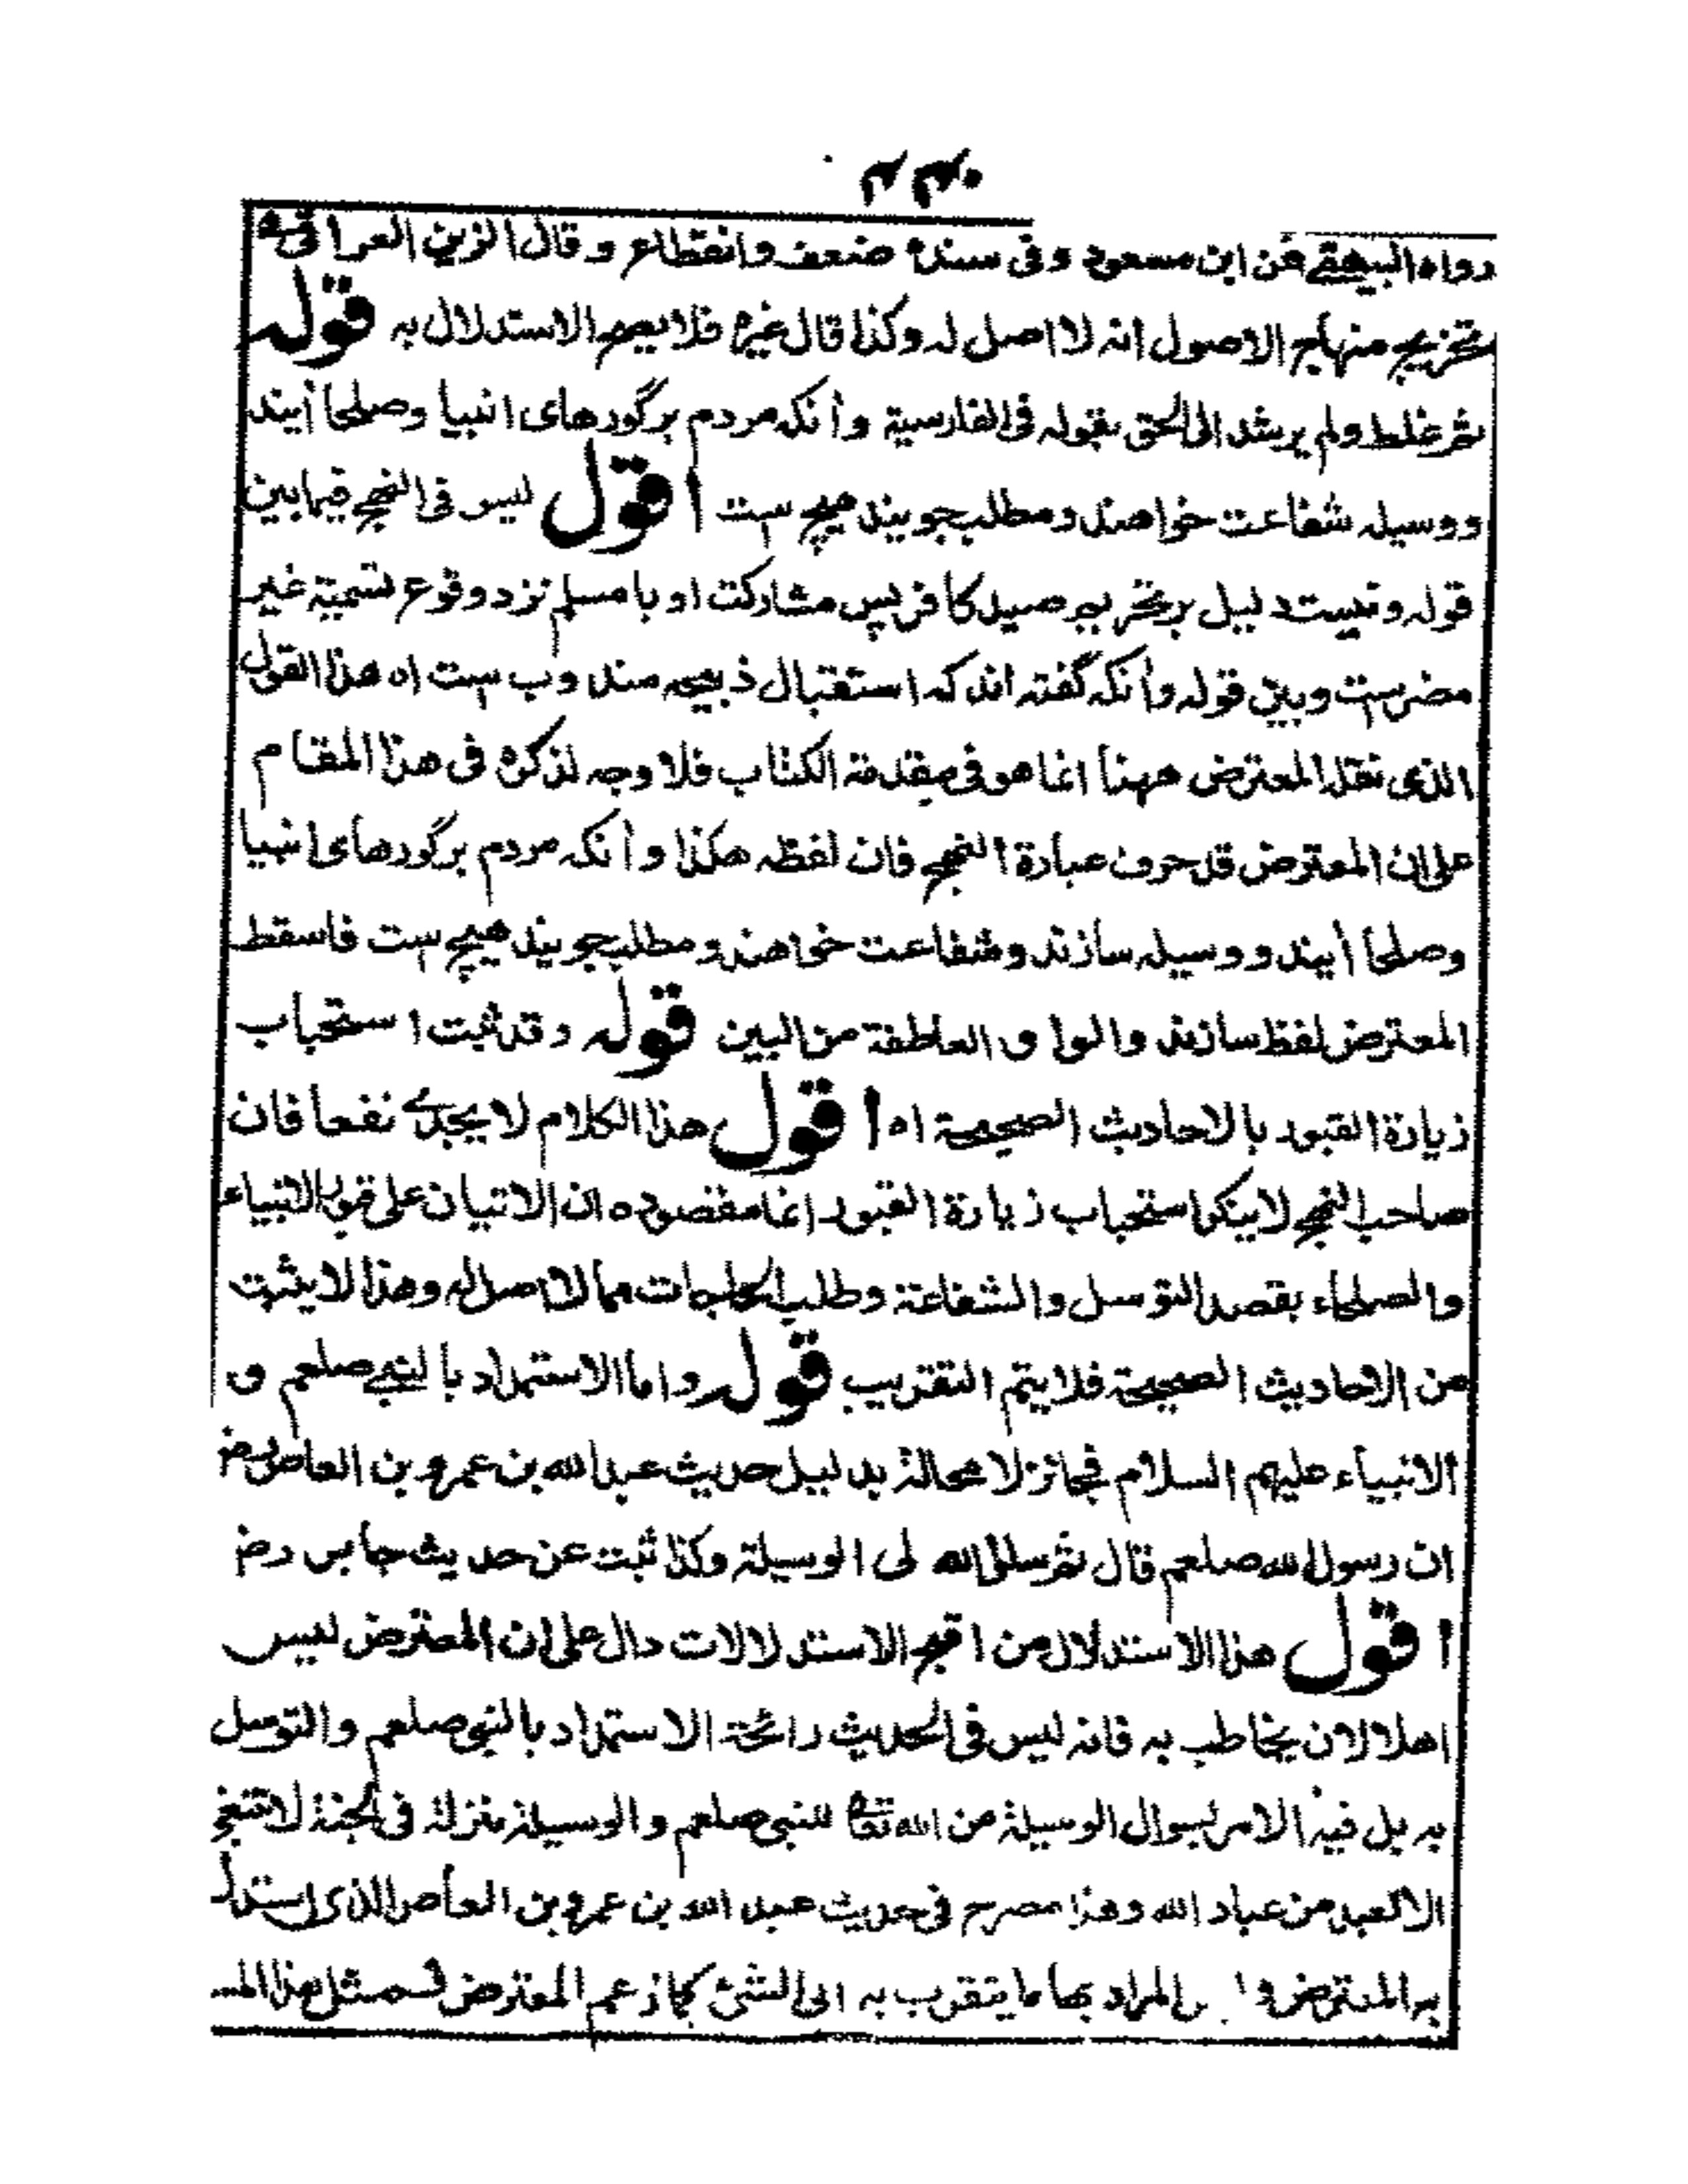 رواه البيهقي عن ابن مسعود وفى سنده ضعف وانقطاع وقال الزين العراقى فى
تخريج منهاج الاصول انه لا اصل له وكذا قال غيره فلا يصح الاستدلال به قوله
ثم غلط ولم يرشد الى الحق بقوله فى الفارسية وآنكه مردم برگورهاى انبيا وصلحا آيند
ووسيله شفاعت خواهند ومطلب جويند هيچ ست اقول ليس فى النهج فيما بين
قوله ونيست دليل بر تخريم صيد كافر پس مشاركت او با مسلم نزد وقوع تسمية غير
مضر ست وبين قوله وآنكه گفته اند كه استقبال ذبيحه مندوب ست اه هذا القول
الذى نقله المعترض ههنا انما هو فى مقدمة الكتاب فلا وجه لذكره فى هذا المقام
على ان المعترض قد حرف عبارة النهج فان لفظه هكذا وآنكه مردم برگورهاى انبيا
وصلحا آيند ووسيله سازند وشفاعت خواهند ومطلب جويند هيچ ست فاسقط
المعترض لفظ سازند والواو العاطفة من البين قوله وقد ثبت استحباب
زيارة القبور بالاحاديث الصحيحة اه اقول هذا الكلام لا يجدى نفعا فان
صاحب النهج لا ينكر استحباب زيارة القبور انما مقصوده ان الاتيان على قبور الانبياء
والصلحاء بقصد التوسل والشفاعة وطلب الحاجات مما لا اصل له وهذا لا يثبت
من الاحاديث الصحيحة فلا يتم التقريب قوله واما الاستمداد بالنبى صلعم و
الانبياء عليهم السلام فجائز لا محالة بدليل حديث عبد الله بن عمرو بن العاص رض
ان رسول الله صلعم قال ثم سلوا الله لى الوسيلة وكذا ثبت عن حديث جابر رض
اقول هذا الاستدلال من اقبح الاستدلالات دال على ان المعترض ليس
اهلا لان يخاطب به فانه ليس فى الحديث رائحة الاستمداد بالنبى صلعم والتوسل
به بل فيه الامر بسوال الوسيلة من الله تعالى للنبى صلعم والوسيلة منزلة فى الجنة لا تنبغى
الا لعبد من عباد الله وهذا مصرح فى حديث عبد الله بن عمرو بن العاص الذى استدل
به المعترض و المراد بها ما يتقرب به الى الشئ كما زعم المعترض فمثل هذا